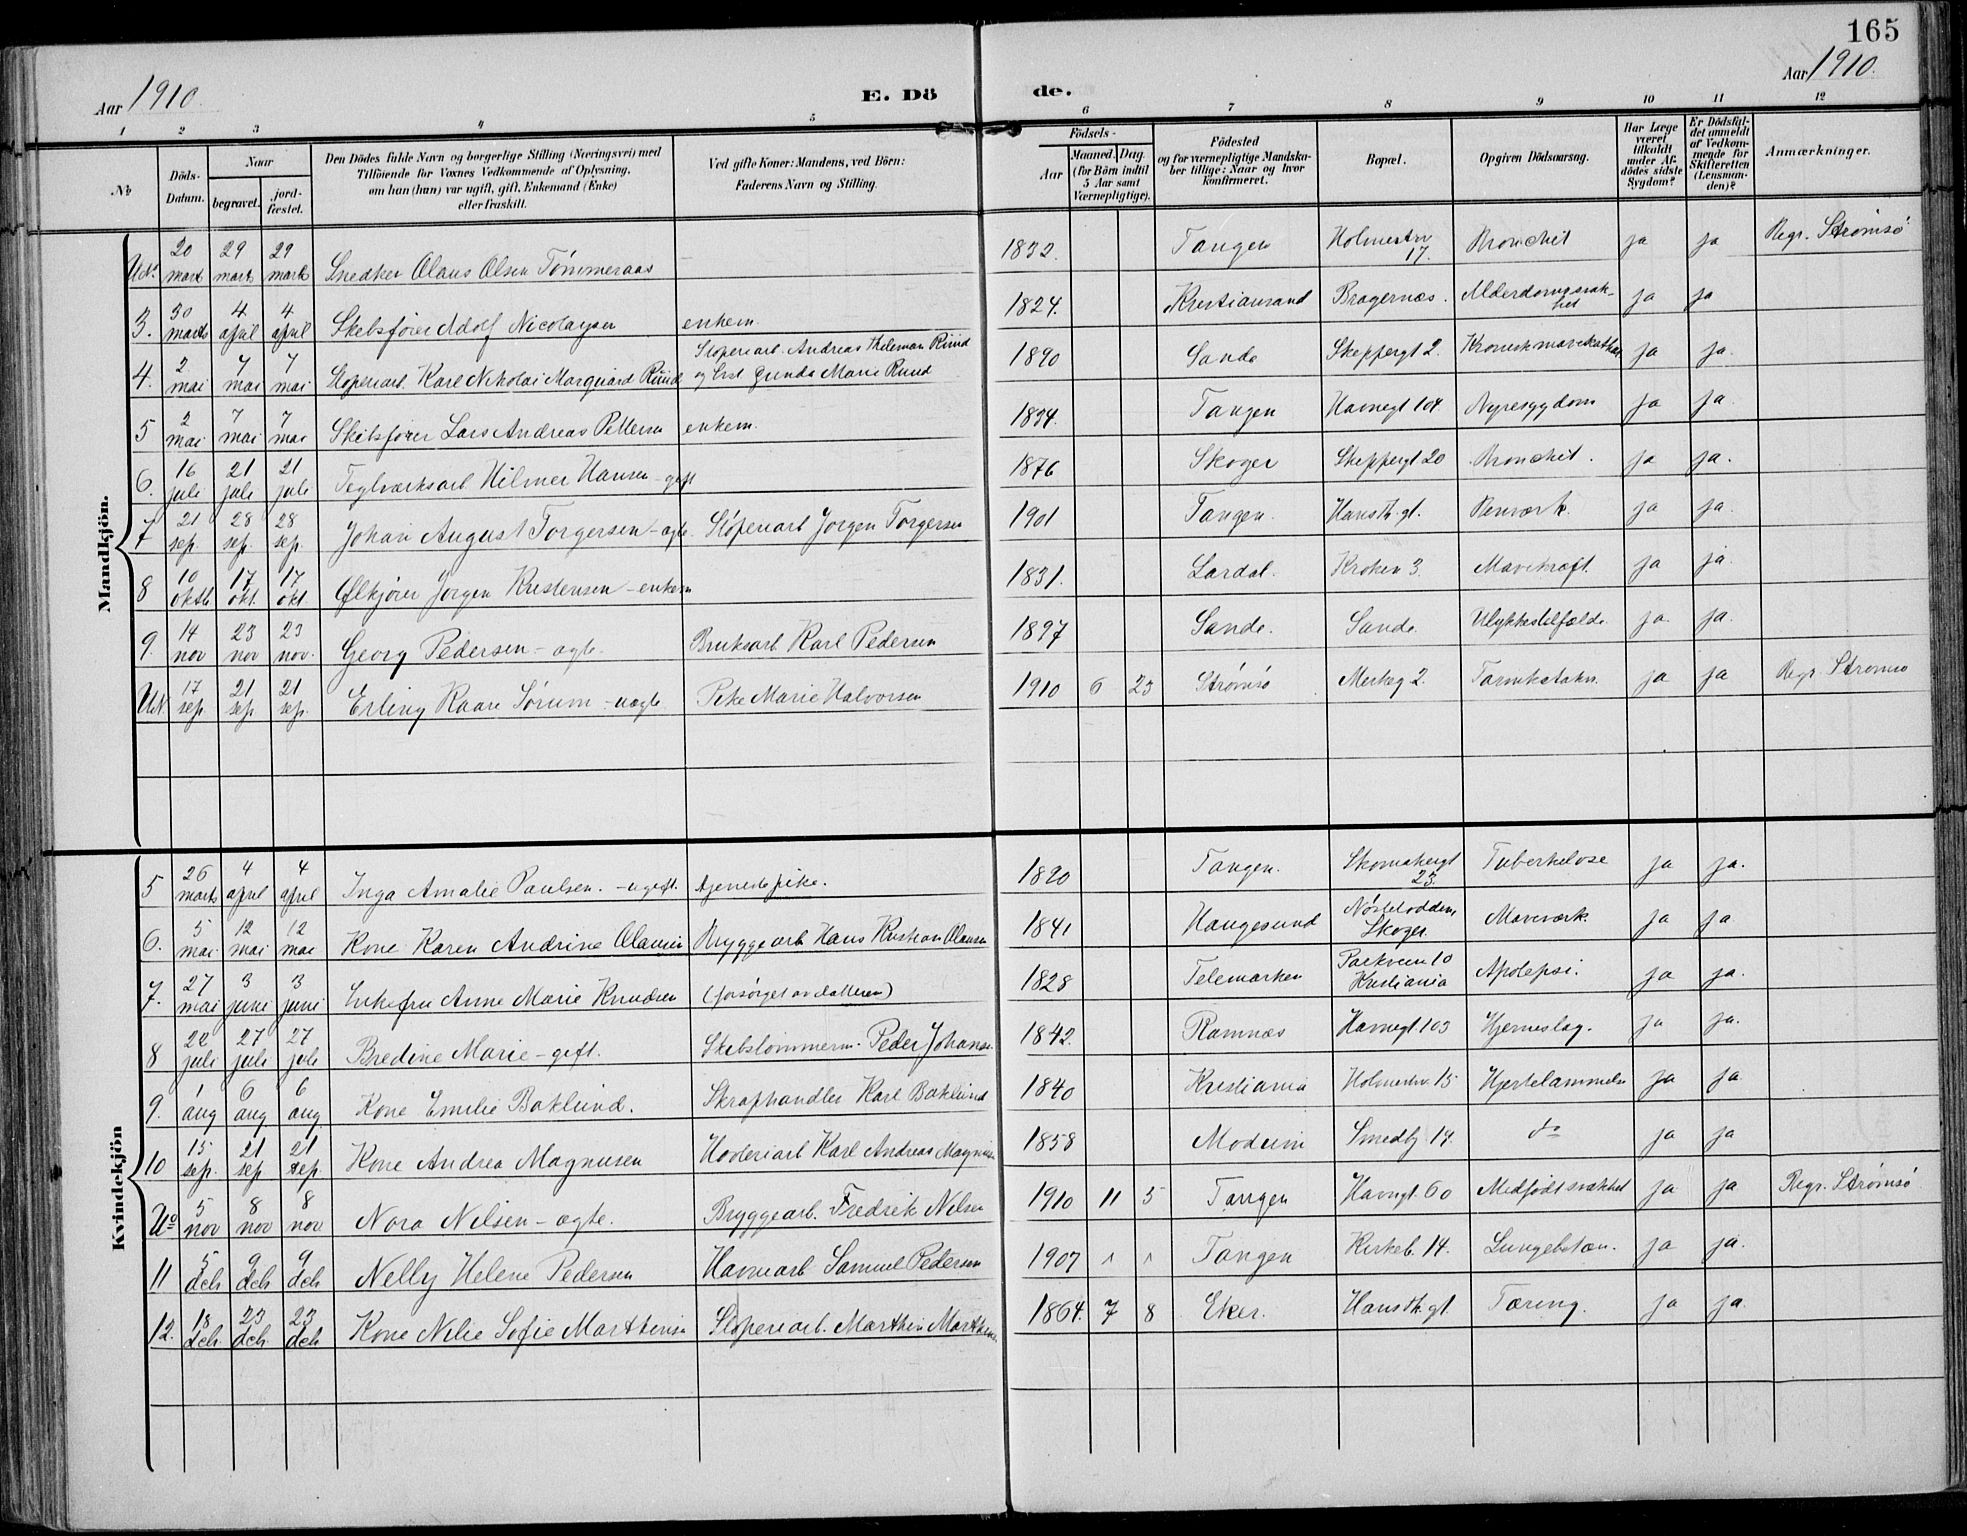 165
Aar 1910.
E. Dö de.
Aar 1910.
1 2 3 4 5 6 7 8 9 10 11 12
No
Döds-Datum.
Naar
begravet.
jord-fæstet.
Den Dödes fulde Navn og borgerlige Stilling (Næringsvei) med
Tilföiende for Voxnes Vedkommende af Oplysning,
om han (hun) var ugift, gift, Enkemand (Enke)
eller fraskilt.
Ved gifte Koner: Mandens, ved Börn:
Faderens Navn og Stilling.
Födsels-
Aar
Maaned. Dag.
(for Börn indtil
5 Aar samt
Værnepligtige).
Födested
og for værnepligtige Mandska-
ber tillige: Naar og hvor
konfirmeret.
Bopæl.
Opgiven Dödsaarsag.
Har Læge
været
tilkaldt
under Af-
dödes sidste
Sygdom?
Er Dödsfal-
det anmeldt
af Vedkom-
mende for
Skifteretten
(Lensman-
den)?
Anmærkninger.
Mandkjön.
20 mart 29 marts 29 marts Snedker Olaus Olsen Tømmeraas 1832. Tangen Holmestrv 17. Bronchit ja ja Regr. Strømsø
3. 30 marts 4 april 4 april Skibsfører Adolf Nicolaysen enkem. 1824. Kristiansand Bragernes. Alderdomssvak-het ja ja
4. 2 mai 7 mai 7 mai Sloperiarb. Karl Nikolai Marquard Ruud Sloperiarb. Andreas Theleman Ruud og Gunda Marie Ruud 1890 Sande Skeppergt 2. Kronisk mavekatharr ja ja.
5 2 mai 7 mai 7 mai Skibsfører Lars Andreas Pettersen enkem. 1834. Tangen Havnegt 104 Nyresygdom ja ja.
6. 16 juli 21 juli 21 juli Teglværksarb. Hilmer Hansen - gift 1876 Skoger Skeppergt 20 Bronchit. ja ja.
7 21 sep. 28 sep. 28 sep. Johan August Torgersen - ægte. Sloperiarb Jørgen Torgersen 1901 Tangen. Hans Th. gt. Benværk. ja ja.
8 10 oktb 17 okt. 17 okt Ølkjører Jørgen Kristensen - enkem 1831. Lardal. Kroken 3. Mavekræft. ja ja.
9. 14 nov 23 nov 23 nov. Georg Pedersen - ægte. Bruksarb. Karl Pedersen 1897 Sande. Sande. Ulykkestilfælde ja. ja.
17 sep. 21 sep 21 sep. Erling Kaare Sørum - uægte Pike Marie Halvorsen 1910 6 23 Strømsø Merkeg 2. Tarmkatahr. ja ja Regr. Strømsø
Kvindekjön
5 26 marts 4 april 4 april Inga Amalie Paulsen. - ugift. tjenestepike. 1820 Tangen. Skomakergt 23. Tuberkelose ja ja.
6. 5 mai 12 mai 12 mai Kone Karen Andrine Olausen Bryggearb Hans Kristian Olausen 1841 Haugesund Nøsteodden, Skoger. Maveværk. ja ja.
7. 27 mai 3 juni 3 juni Enkefru Anne Marie Knudsen (forsørget av datteren) 1828 Telemarken Parkveien 10 Kristiania Apoplepsi. ja ja.
8 22 juli 27 juli 27 juli Bredine Marie - gift. Skibstømmerm. Peder Johans. 1842. Ramnæs Havnegt. 103 Hjerneslag. ja ja.
9. 1 aug 6 aug 6 aug Kone Emilie Baklund. Skraphandler Karl Baklund 1840 Kristiania Holmestrv. 15 Hjertelammelse ja ja.
10 15 sep. 21 sep 21 sep. Kone Andrea Magnusen Høvleriarb Karl Andreas Magnusen 1858 Modum Smedbj. 19. do ja ja
Uo 5 nov 8 nov 8 nov Nora Nilsen - ægte. Bryggearb. Fredrik Nilsen 1910 11 5 Tangen Havngt. 60 Medfødt svakhet ja ja Regr. Strømsø
11 5 dcb 9 dcb 9 dcb Nelly Helene Pedersen Havnearb Samuel Pedersen 1907 1 1 Tangen Kirkeb. 14. Lungebetæn. ja ja.
12. 18 dcb. 23 dcb. 23 dcb Kone Nilie Sofie Marthinsen Sloperiarb. Marthin Marthinsen 1864. 7 8 Eker. Hans Th. gt Tæring. ja ja.